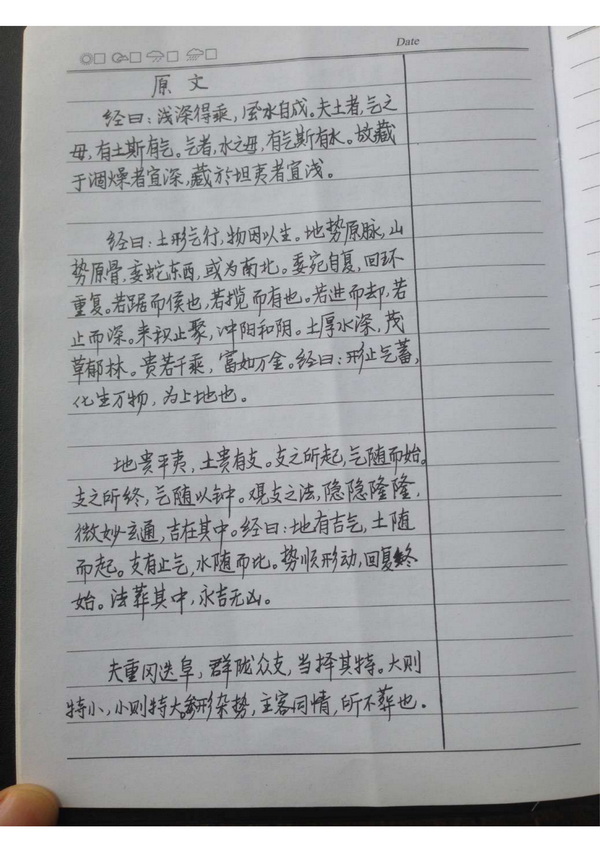 Date
原文
经曰：浅深得乘，风水自成。夫土者，气之
母，有土斯有气。气者，水之母，有气斯有水。故藏
于涸燥者宜深，藏於坦夷者宜浅。
经曰：土形气行，物因以生。地势原脉，山
势原骨，委蛇东西，或为南北。委宛自复，回环
重复。若踞而侯也，若揽而有也。若进而却，若
止而深。来积止聚，冲阳和阴。土厚水深，茂
草郁林。贵若千乘，富如万金。经曰：形止气蓄，
化生万物，为上地也。
地贵平夷，土贵有支。支之所起，气随而始。
支之所终，气随以钟。观支之法，隐隐隆隆，
微妙玄通，吉在其中。经曰：地有吉气，土随
而起。支有止气，水随而比。势顺形动，回复终
始。法葬其中，永吉无凶。
夫重冈迭阜，群陇众支，当择其特。大则
特小，小则特大。参形杂势，主客同情，所不葬也。